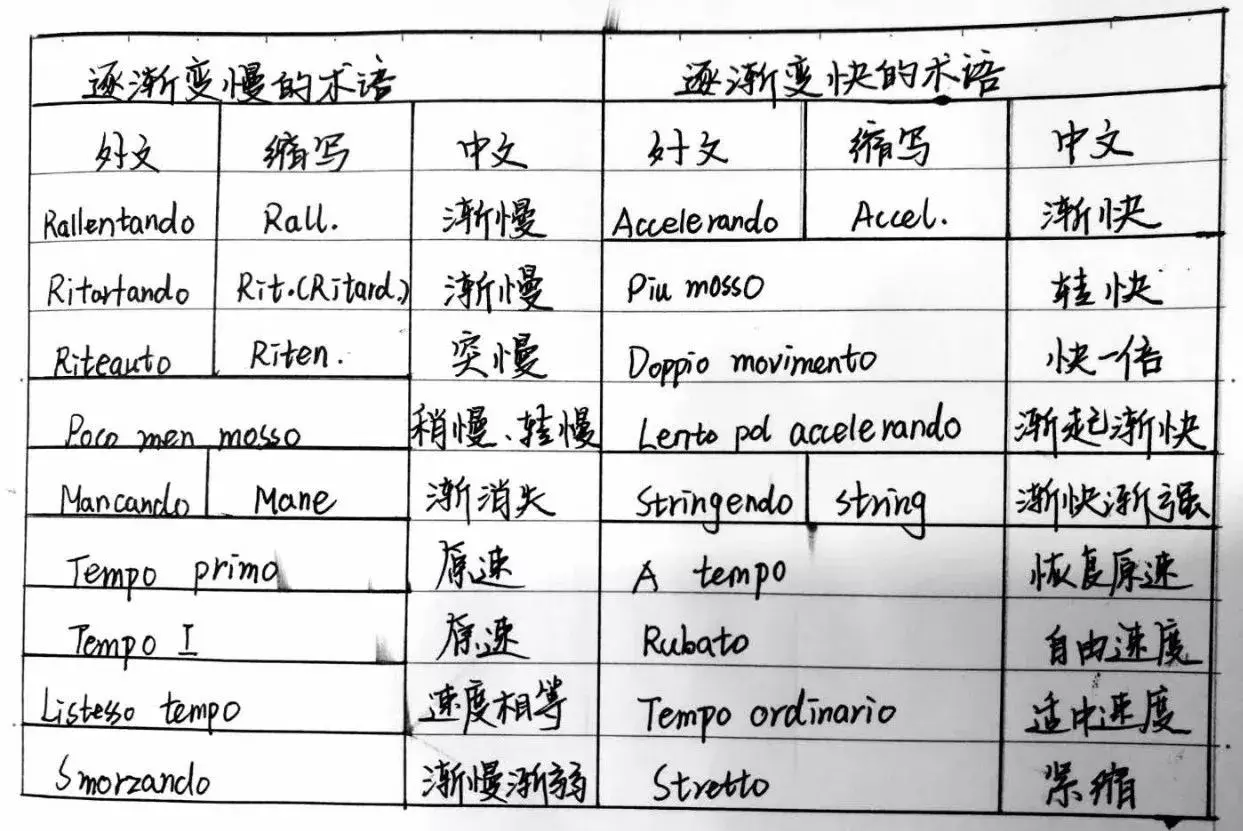 逐渐变慢的术语 逐渐变快的术语
外文 缩写 中文 外文 缩写 中文
Rallentando Rall. 渐慢 Accelerando Accel. 渐快
Ritartando Rit.(Ritard.) 渐慢 Piu mosso 转快
Riteauto Riten. 突慢 Doppio movimento 快一倍
Poco men mosso 稍慢、转慢 Lento pol accelerando 渐起渐快
Mancando Mane 渐消失 Stringendo string 渐快渐强
Tempo primo 原速 A tempo 恢复原速
Tempo I 原速 Rubato 自由速度
Listesso tempo 速度相等 Tempo ordinario 适中速度
Smorzando 渐慢渐弱 Stretto 紧缩